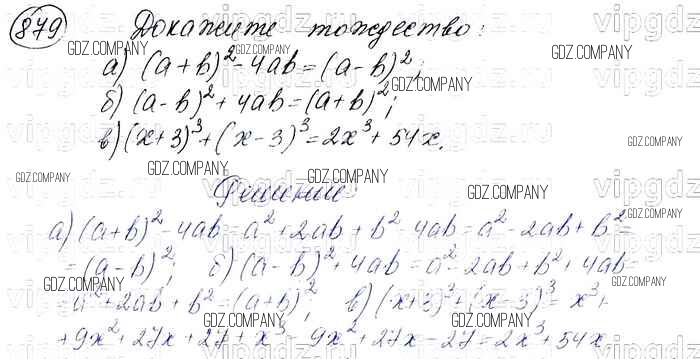 879 Докажите тождество:
а) (a+b)²-4ab=(a-b)²;
б) (a-b)²+4ab=(a+b)²;
в) (x+3)³+(x-3)³=2x³+54x.
Решение
а) (a+b)²-4ab=a²+2ab+b²-4ab=a²-2ab+b²=
=(a-b)²; б) (a-b)²+4ab=a²-2ab+b²+4ab=
=a²+2ab+b²=(a+b)²; в) (x+3)³+(x-3)³=x³+
+9x²+27x+27+x³-9x²+27x-27=2x³+54x.
GDZ.COMPANY
vipgdz.ru